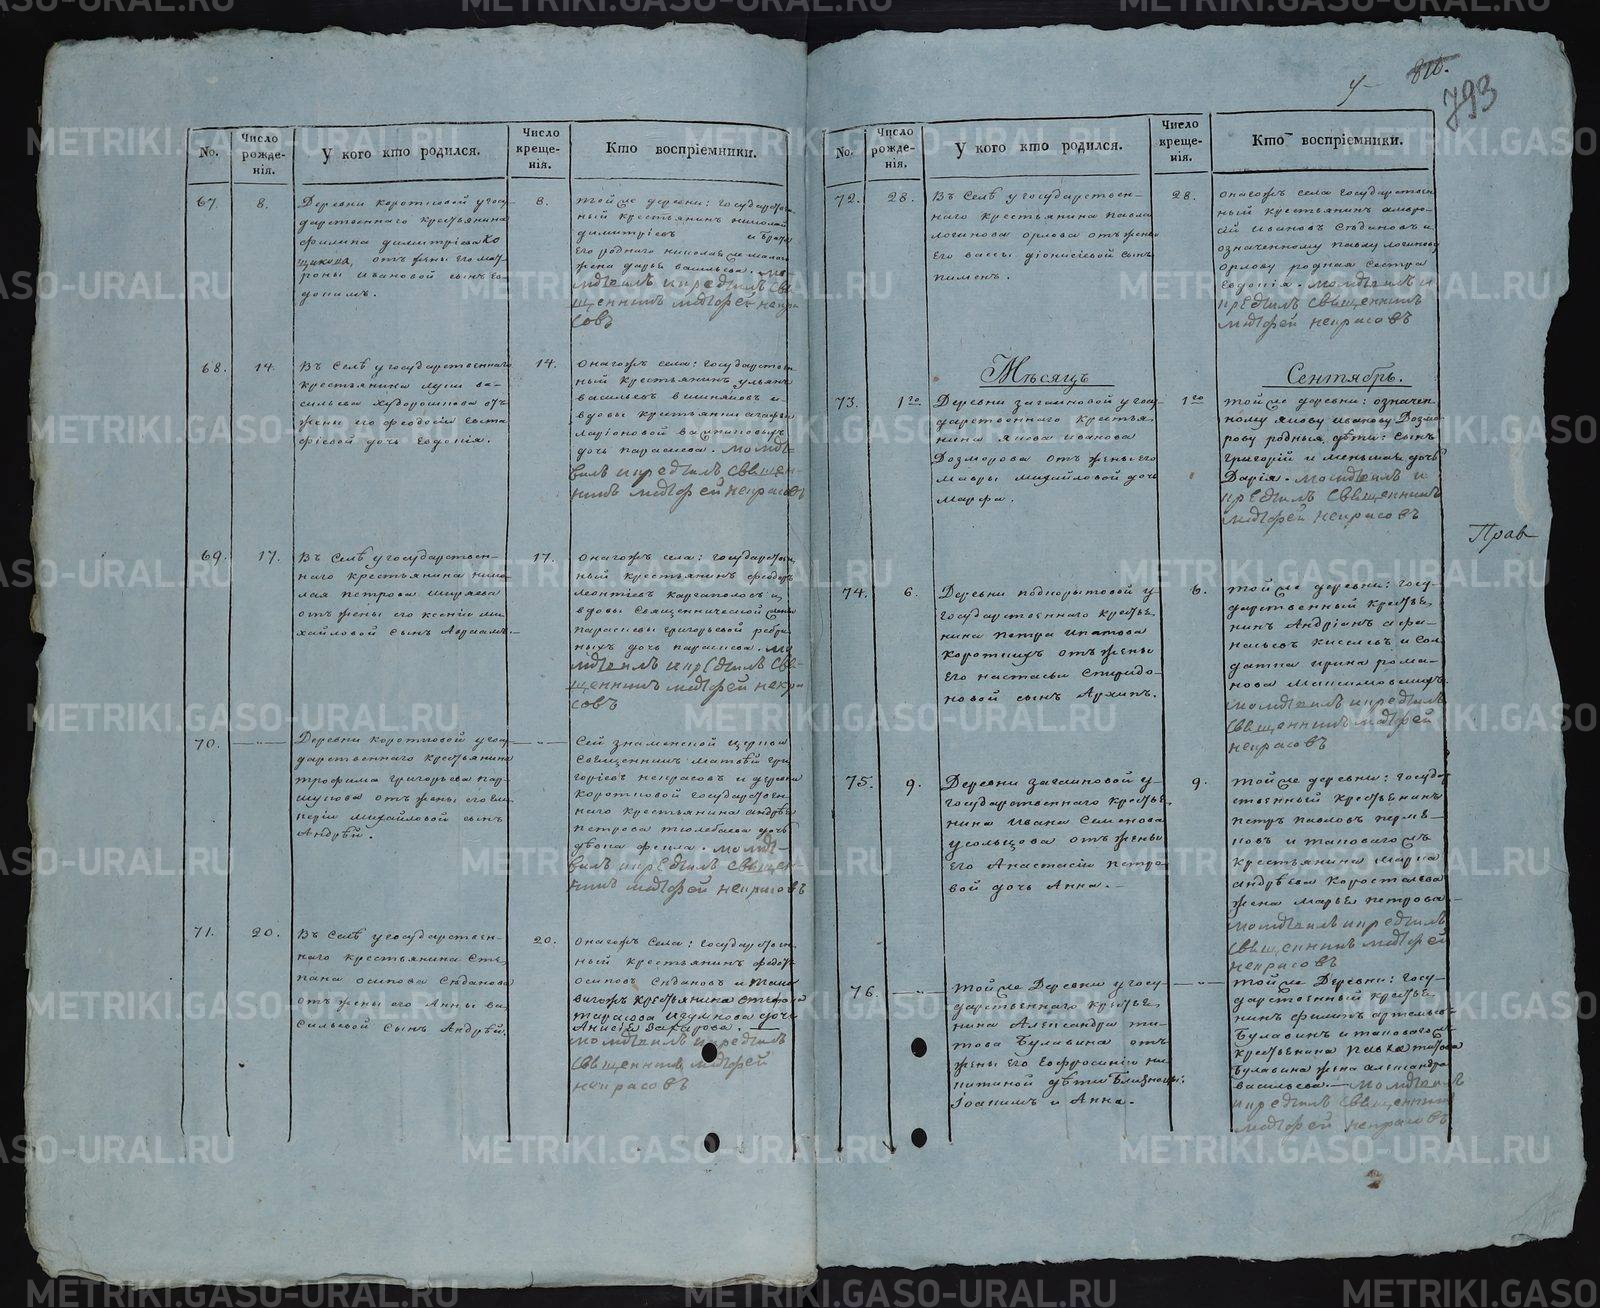 У 815.
793
No. Число рожденія. У кого кто родился. Число крещенія. Кто воспріемники.
67. 8. 8.
Деревни Коротковой у госу-
дарственнаго крестьянина
Филипа Димитріева Ко
щикова, отъ жены его Мат
роны Ивановой сынъ Ев-
докимъ.
тойже деревни: государствен-
ный крестьянинъ Николай
Димитріевъ и брата
его роднаго Николая же малаго
жена Дарья Васильева. мо-
литвилъ и крестилъ свя-
щенникъ Матфей Некра
совъ
68. 14. 14.
Въ Селѣ у государственнаго
крестьянина Луки Ва-
сильева Худорошкова отъ
жены его Феодосіи Евста
фіевой дочь Евдокія.
онагожъ села: государствен-
ный крестьянинъ Ульянъ
Васильевъ Вешняковъ и
вдовы крестьянки Агафьи
Ларіоновой
дочь Параскева. молит-
вилъ и крестилъ священ-
никъ Матфей Некрасовъ
69. 17. 17.
Въ Селѣ у государствен-
наго крестьянина Нико-
лая Петрова Ширяева
отъ жены его Ксеніи Ми-
хайловой сынъ Авраамъ.
онагожъ села: государствен-
ный крестьянинъ Феодоръ
Леонтіевъ Каргаполовъ и
вдовы священнической жены
Параскевы Григорьевой
дочь Параскева. мо
литвилъ и крестилъ свя-
щенникъ Матфей Некра
совъ
70.
Деревни Коротковой у госу-
дарственнаго крестьянина
Трофима Григорьева Пар-
шукова отъ жены его Гли-
керіи Михайловой сынъ
Андрѣй.
Сей Знаменской церкви
Священникъ Матвѣй Гри
горіевъ Некрасовъ и деревни
Коротковой государствен-
наго крестьянина Андрѣя
Петрова Тюлебаева дочь
дѣвка Фекла. молит-
вилъ и крестилъ священ-
никъ Матфей Некрасовъ
71. 20. 20.
Въ Селѣ у государствен-
наго крестьянина Сте
пана Осипова Сѣданова
отъ жены его Анны Ва
сильевой сынъ Андрѣй.
онагожъ села: государствен-
ный крестьянинъ Федотъ
Осиповъ Сѣдановъ и тако
вагожъ крестьянина
Тарасова Игумнова дочь
Анисія Захарова.
молитвилъ и крестилъ
Священникъ Матфей
Некрасовъ
No. Число рожденія. У кого кто родился. Число крещенія. Кто воспріемники.
72. 28. 28.
Въ Селѣ у государствен-
наго крестьянина Павла
Логинова Орлова отъ жены
его Вассы Діонисіевой сынъ
Пименъ.
онагожъ села государствен
ный крестьянинъ Амвро-
сій Ивановъ Сѣдановъ и
означенному Павлу Логинову
Орлову родная сестра
Евдокія. молитвилъ и
крестилъ священникъ
Матфей Некрасовъ
Мѣсяцъ Сентябрь.
73. 1го 1го
Деревни Загайновой у госу-
дарственнаго крестья-
нина Якова Иванова
Дозморова отъ жены его
Мавры Михайловой дочь
Марфа.
тойже деревни: означен-
ному Якову Иванову Дозмо-
рову родныя дѣти: сынъ
Григорій и меньшая дочь
Дарія. молитвилъ и
крестилъ священникъ
Матфей Некрасовъ
Прав
74. 6. 6.
Деревни Подкорытовой у
государственнаго крестья
нина Петра Ипатова
Короткихъ отъ жены
его Настасьи Спиридо-
новой сынъ Архипъ.
тойже деревни: госу-
дарственный крестья
нинъ Андріанъ Афа-
насьевъ Киселевъ и сол-
датка Ирина Рома-
нова Максимовыхъ.
молитвилъ и крестилъ
священникъ Матфей
Некрасовъ
75. 9. 9.
Деревни Загайновой у
государственнаго крестья
нина Ивана Семенова
Усольцова отъ жены
его Анастасіи Петро
вой дочь Анна.
тойже деревни: государ
ственный крестьянинъ
Петръ Павловъ Пермя-
ковъ и таковагожъ
крестьянина Марка
Андрѣева Коростелева
жена Марья Петрова.
молитвилъ и крестилъ
священникъ Матфей
Некрасовъ
76.
тойже Деревни у госу-
дарственнаго крестья
нина Александра Ти-
това Булавина отъ
жены его Евфросиніи Ни
китиной дѣти близнецы:
Іоакимъ и Анна.
тойже Деревни: госу-
дарственный крестья
нинъ Филипъ Артемьевъ
Булавинъ и таковагожъ
крестьянина Павла Титова
Булавина жена Александра
Васильева. молитвилъ
и крестилъ священникъ
Матфей Некрасовъ
METRIKI.GASO-URAL.RU